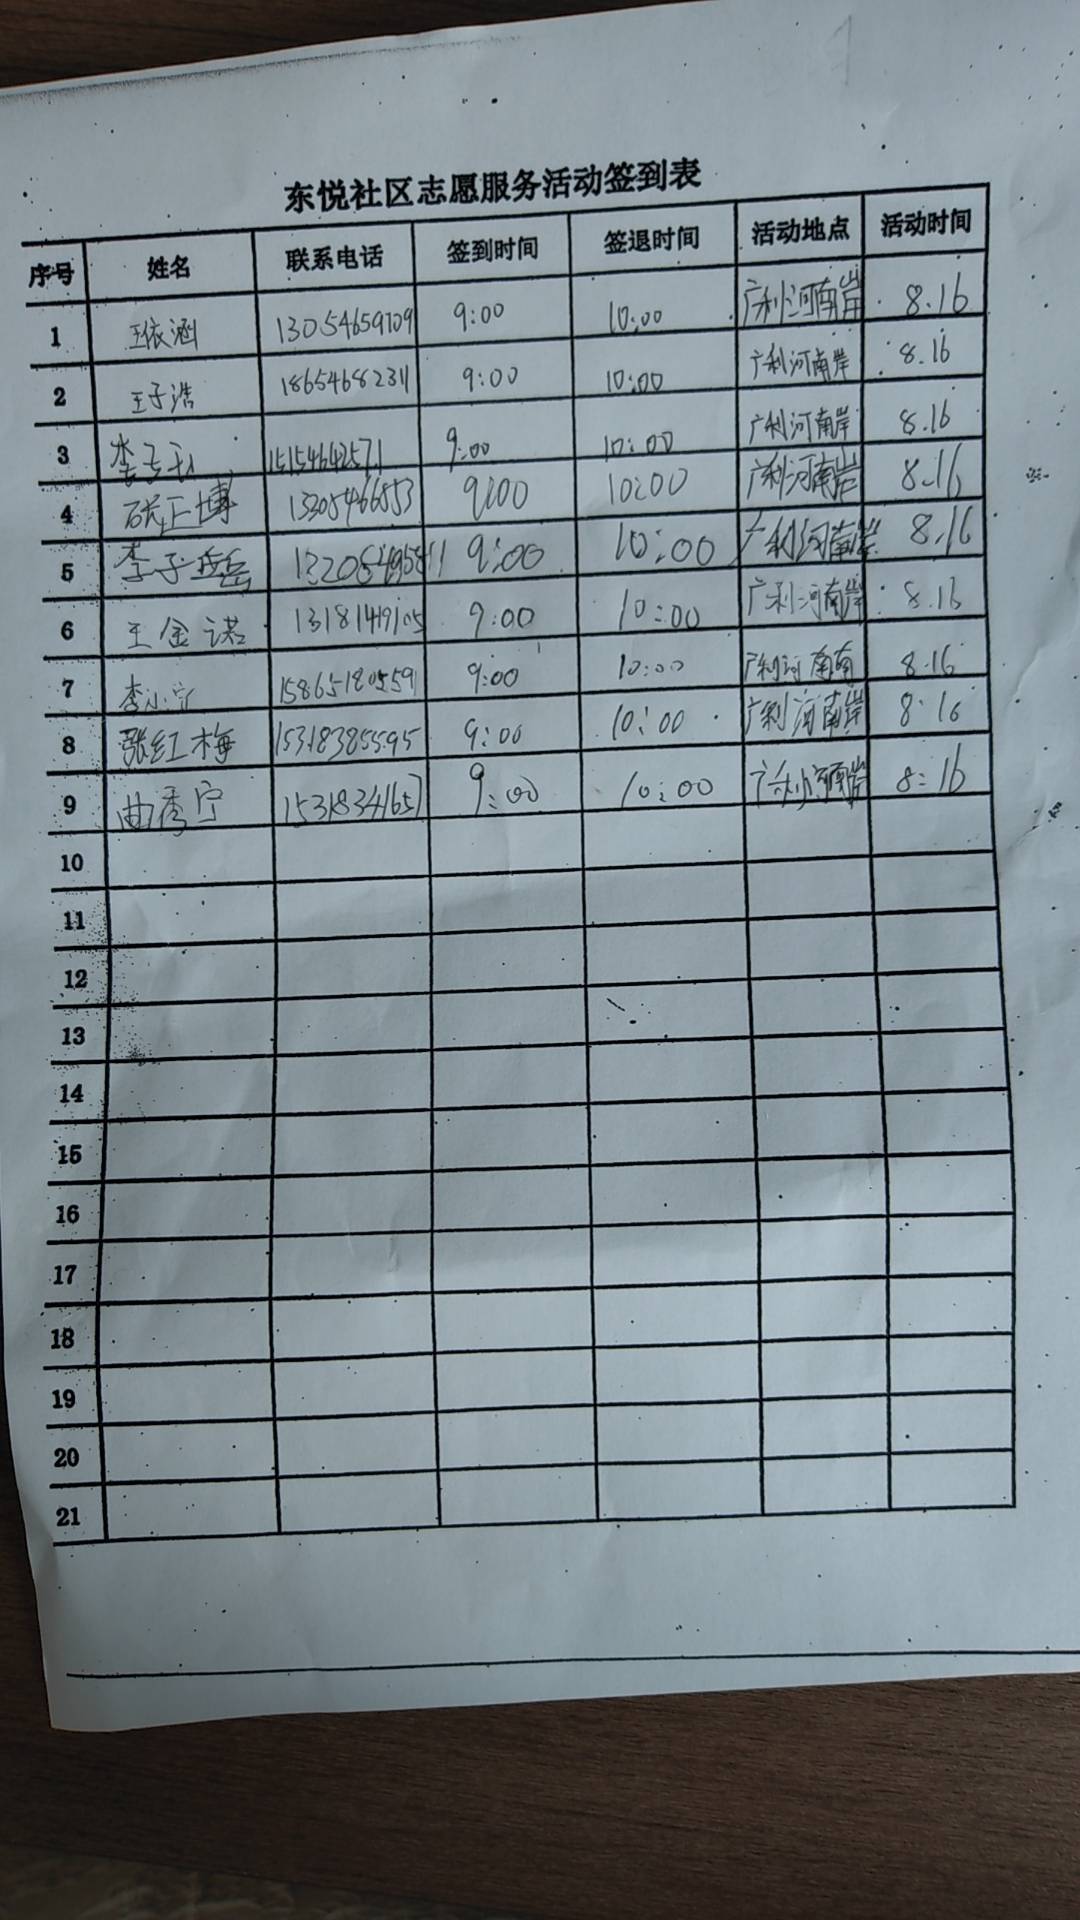 东悦社区志愿服务活动签到表
序号 姓名 联系电话 签到时间 签退时间 活动地点 活动时间
1 王依涵 13054659709 9:00 10:00 广利河南岸 8.16
2 王子浩 18654682311 9:00 10:00 广利河南岸 8.16
3 李 15154642571 9:00 10:00 广利河南岸 8.16
4 张正博 15305466853 9:00 10:00 广利河南岸 8.16
5 李子岳 9:00 10:00 广利河南岸 8.16
6 王金诺 13181449105 9:00 10:00 广利河南岸 8.16
7 李小宁 15865180559 9:00 10:00 广利河南南 8.16
8 张红梅 15318385595 9:00 10:00 广利河南岸 8.16
9 曲秀宁 15318341657 9:00 10:00 8:16
10
11
12
13
14
15
16
17
18
19
20
21